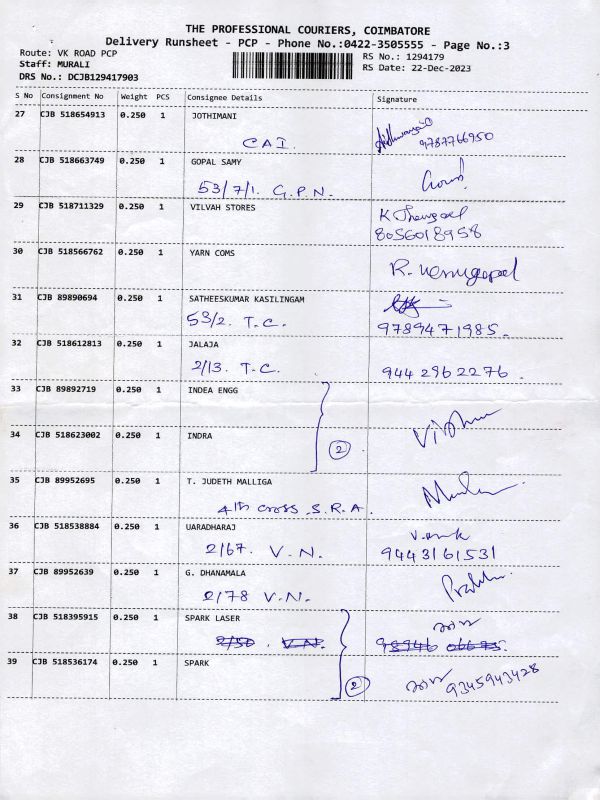 THE PROFESSIONAL COURIERS, COIMBATORE
Delivery Runsheet - PCP - Phone No.:0422-3505555 - Page No.:3
Route: VK ROAD PCP RS No.: 1294179
Staff: MURALI RS Date: 22-Dec-2023
DRS No.: DCJB129417903
S No Consignment No Weight PCS Consignee Details Signature
27 CJB 518654913 0.250 1 JOTHIMANI
CAI. 9787766950
28 CJB 518663749 0.250 1 GOPAL SAMY
53/7/1. G.P.N.
29 CJB 518711329 0.250 1 VILVAH STORES
8056018958
30 CJB 518566762 0.250 1 YARN COMS
R. Venugopal
31 CJB 89890694 0.250 1 SATHEESKUMAR KASILINGAM
53/2. T.C. 9789471985.
32 CJB 518612813 0.250 1 JALAJA
2/13. T.C. 9442962276.
33 CJB 89892719 0.250 1 INDEA ENGG
34 CJB 518623002 0.250 1 INDRA
2
35 CJB 89952695 0.250 1 T. JUDETH MALLIGA
4th cross. S.R.A.
36 CJB 518538884 0.250 1 UARADHARAJ
2/67. V.N. 9443161531
37 CJB 89952639 0.250 1 G. DHANAMALA
2/78 V.N.
38 CJB 518395915 0.250 1 SPARK LASER
39 CJB 518536174 0.250 1 SPARK
2 9345943428